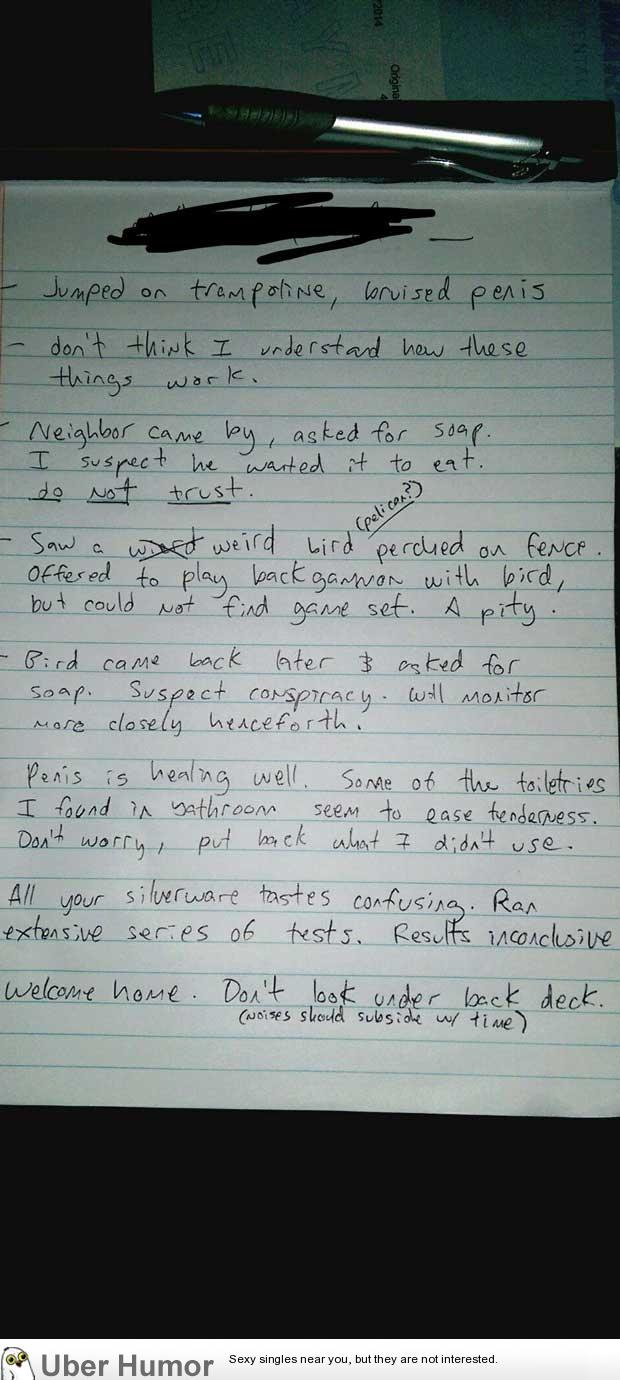 2014
Original
4
- Jumped on trampoline, bruised penis
- don't think I understand how these
things work.
- Neighbor came by, asked for soap.
I suspect he wanted it to eat.
do not trust.
(pelican?)
- Saw a wierd weird bird perched on fence.
Offered to play backgammon with bird,
but could not find game set. A pity.
- Bird came back later & asked for
soap. Suspect conspiracy. Will monitor
more closely henceforth.
Penis is healing well. Some of the toiletries
I found in bathroom seem to ease tenderness.
Don't worry, put back what I didn't use.
All your silverware tastes confusing. Ran
extensive series of tests. Results inconclusive
Welcome home. Don't look under back deck.
(noises should subside w/ time)
Uber Humor
Sexy singles near you, but they are not interested.